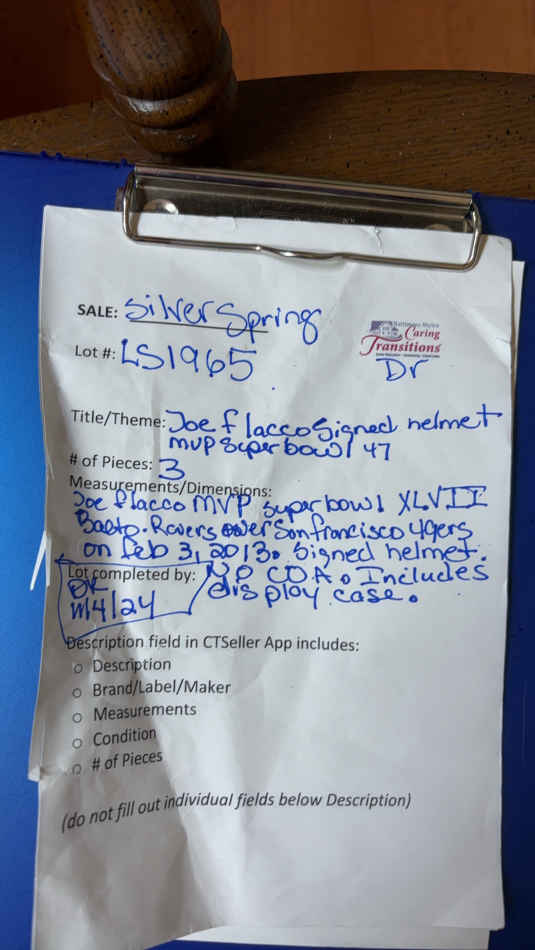 SALE: Silver Spring
Lot #: LS1965
Caring
Transitions
Dr
Title/Theme: Joe flacco Signed helmet
mvp superbowl 47
# of Pieces: 3
Measurements/Dimensions:
Joe flacco MVP superbowl XLVII
Balto. Ravers over San francisco 49ers
on feb 3, 2013. Signed helmet.
Lot completed by: NO COA. Includes
DR display case.
11/4/24
Description field in CTSeller App includes:
o Description
o Brand/Label/Maker
o Measurements
o Condition
o # of Pieces
(do not fill out individual fields below Description)